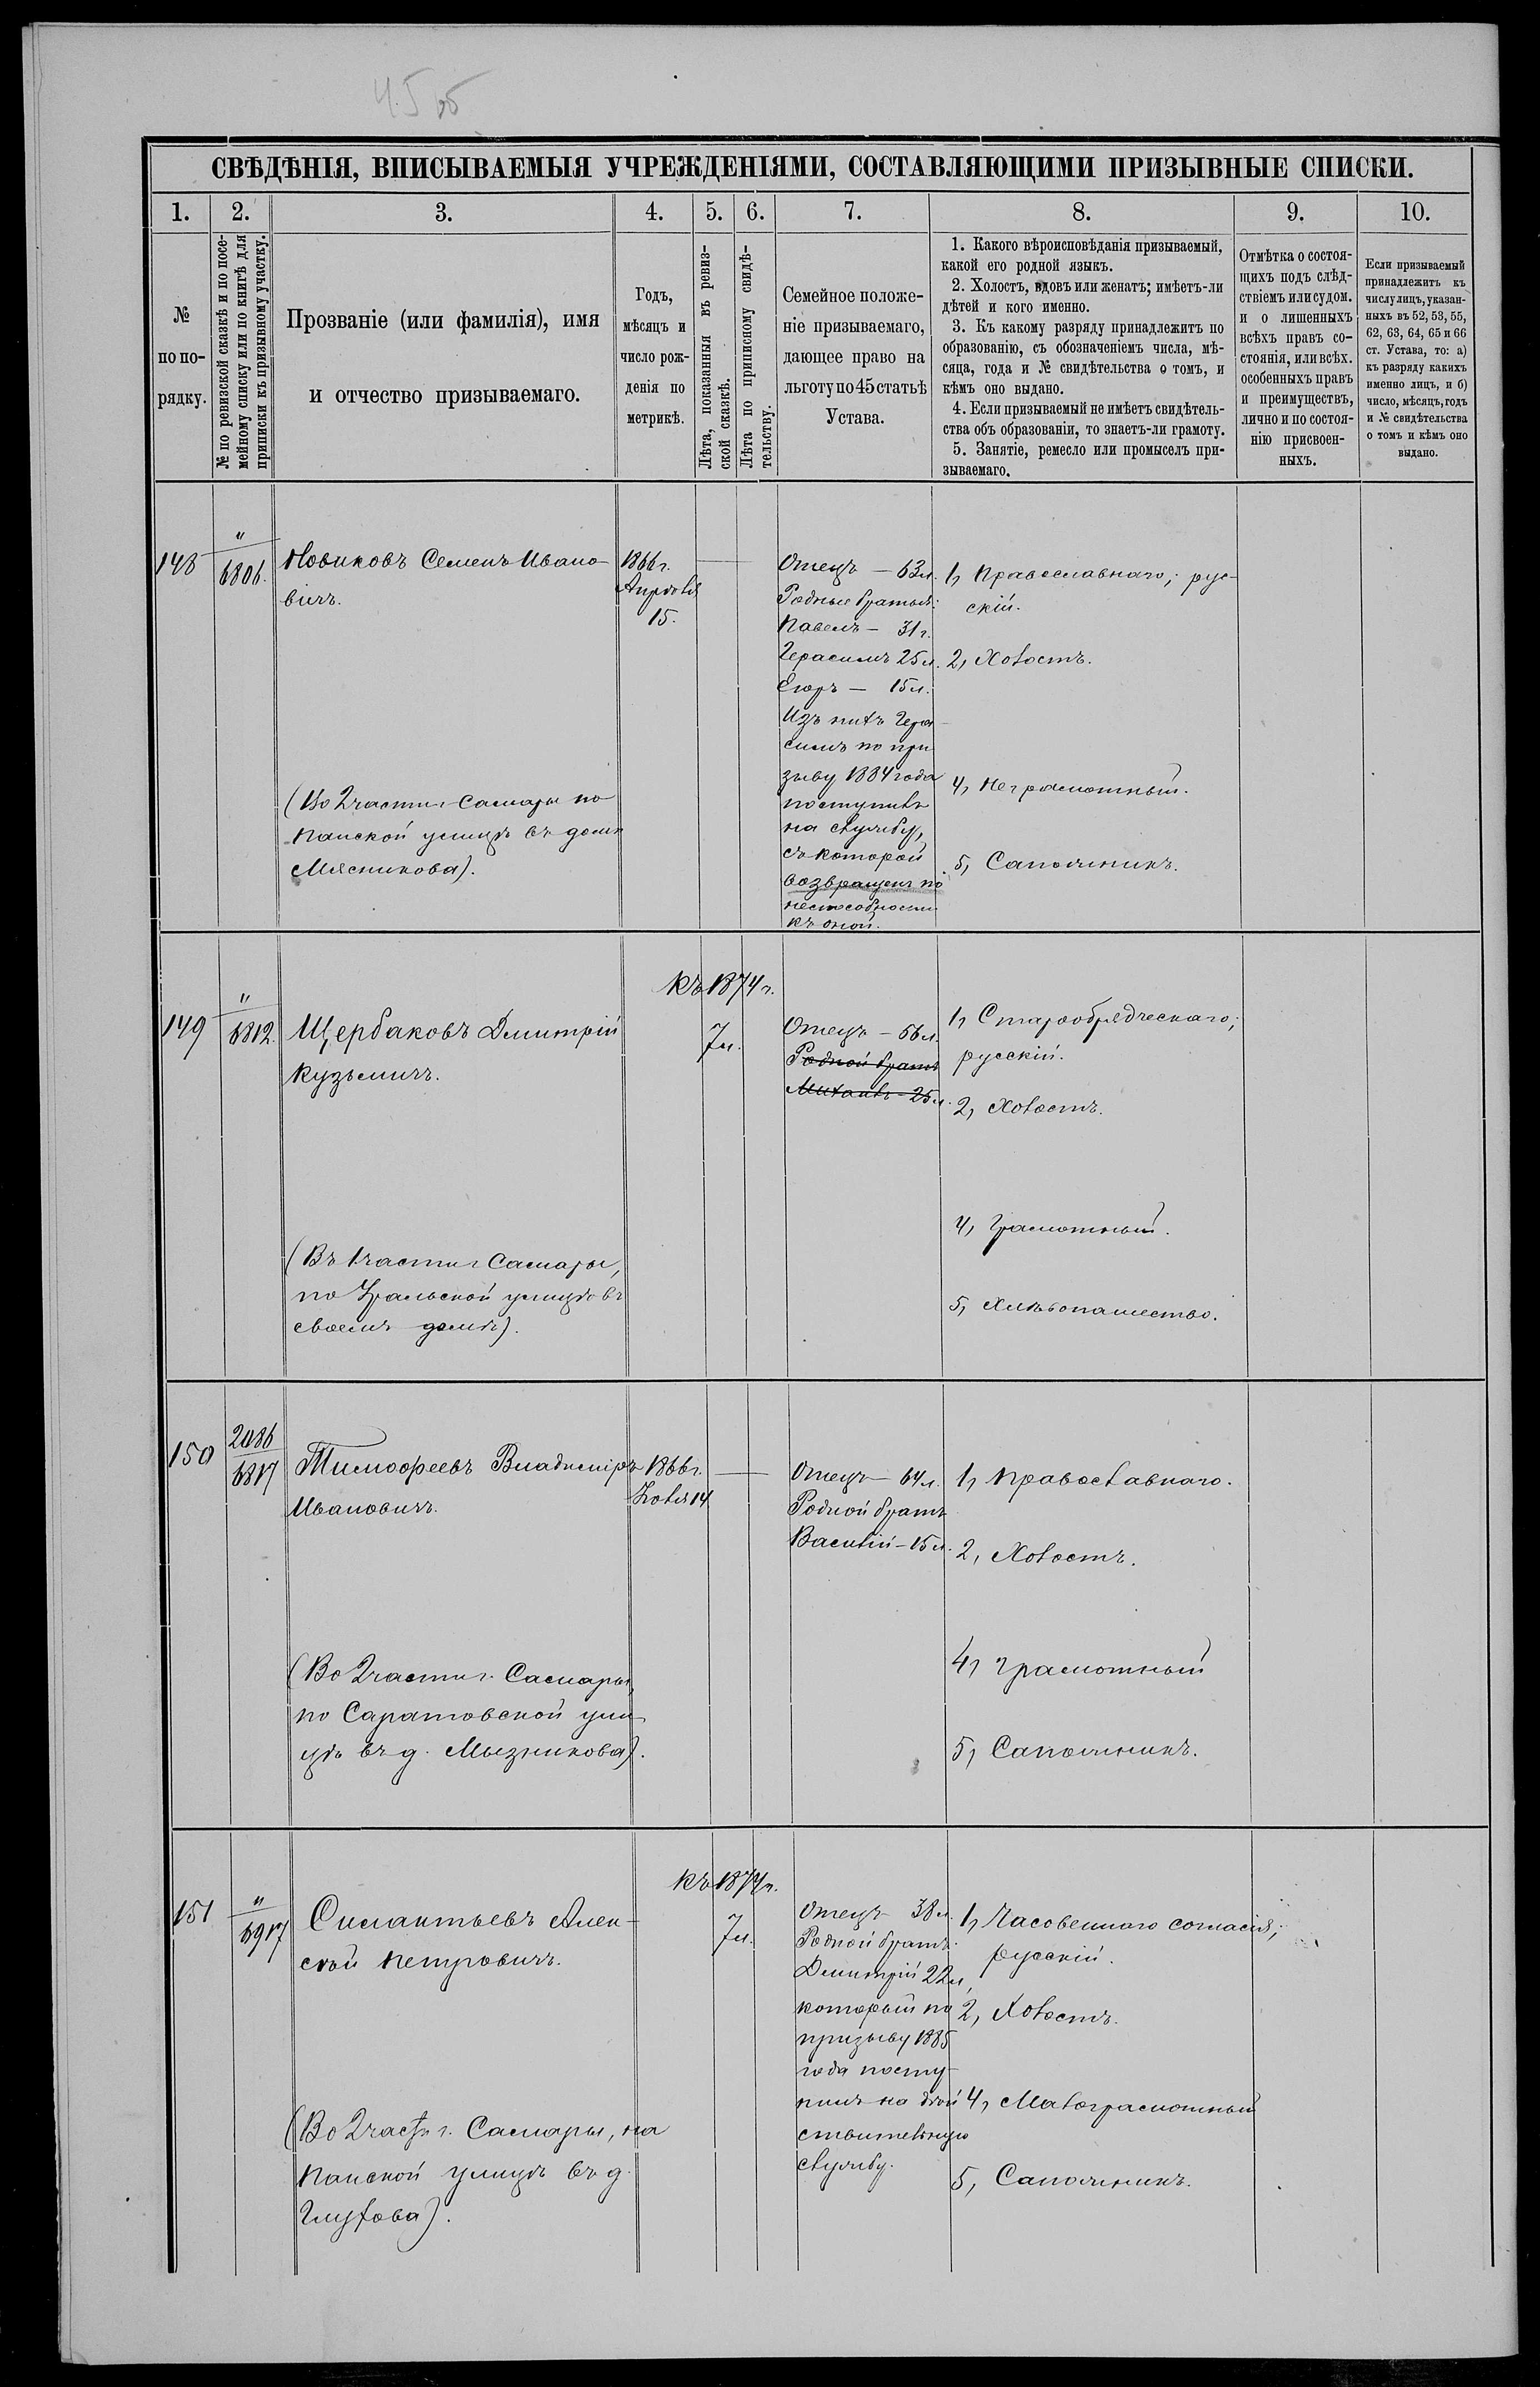 45 об
СВѢДѢНІЯ, ВПИСЫВАЕМЫЯ УЧРЕЖДЕНІЯМИ, СОСТАВЛЯЮЩИМИ ПРИЗЫВНЫЕ СПИСКИ.
1. 2. 3. 4. 5. 6. 7. 8. 9. 10.
№
по по-
рядку.
№ по ревизской сказкѣ и по посе-
мейному списку или по книгѣ для
приписки къ призывному участку.
Прозваніе (или фамилія), имя
и отчество призываемаго.
Годъ,
мѣсяцъ и
число рож-
денія по
метрикѣ.
Лѣта, показанныя въ ревиз-
ской сказкѣ.
Лѣта по приписному свидѣ-
тельству.
Семейное положе-
ніе призываемаго,
дающее право на
льготу по 45 статьѣ
Устава.
1. Какого вѣроисповѣданія призываемый,
какой его родной языкъ.
2. Холостъ, вдовъ или женатъ; имѣетъ-ли
дѣтей и кого именно.
3. Къ какому разряду принадлежитъ по
образованію, съ обозначеніемъ числа, мѣ-
сяца, года и № свидѣтельства о томъ, и
кѣмъ оно выдано.
4. Если призываемый не имѣетъ свидѣтель-
ства объ образованіи, то знаетъ-ли грамоту.
5. Занятіе, ремесло или промыселъ при-
зываемаго.
Отмѣтка о состоя-
щихъ подъ слѣд-
ствіемъ или судом.
и о лишенныхъ
всѣхъ правъ со-
стоянія, или всѣх.
особенныхъ правъ
и преимуществъ,
лично и по состоя-
нію присвоен-
ныхъ.
Если призываемый
принадлежитъ къ
числу лицъ, указан-
ныхъ въ 52, 53, 55,
62, 63, 64, 65 и 66
ст. Устава, то: а)
къ разряду какихъ
именно лицъ, и б)
число, мѣсяцъ, годъ
и № свидѣтельства
о томъ и кѣмъ оно
выдано.
148
"
6806.
Новиковъ Семенъ Ивано-
вичъ.
(Во 2 части г. Самары по
Панской улицѣ въ домѣ
Мясникова).
1866 г.
Апрѣля
15.
Отецъ — 63 л.
Родные братья:
Павелъ — 31 г.
Герасимъ 25 л.
Егоръ — 15 л.
Изъ нихъ Гера-
симъ по при-
зыву 1884 года
поступилъ
на службу,
съ которой
возвращенъ по
неспособности
къ оной.
1, Православнаго; рус-
скій.
2, Холостъ.
4, Неграмотный.
5, Сапожникъ.
149
"
6812.
Щербаковъ Дмитрій
Кузьмичъ.
(Въ 1 части г. Самары,
по Уральской улицѣ въ
своемъ домѣ).
Къ 1874 г.
7 л.
Отецъ — 56 л.
Родной братъ
Михаилъ — 25 л.
1, Старообрядческаго;
русскій.
2, Холостъ.
4, Грамотный.
5, Хлѣбопашество.
150
2086
6817
Тимофеевъ Владиміръ
Ивановичъ.
(Во 2 части г. Самары,
по Саратовской ули-
цѣ въ д. Мызникова).
1866 г.
Іюля 14
Отецъ — 64 л.
Родной братъ
Василій — 15 л.
1, Православнаго.
2, Холостъ.
4, Грамотный
5, Сапожникъ.
151
"
6917
Силантьевъ Алек-
сѣй Петровичъ.
(Во 2 части г. Самары, на
Панской улицѣ въ д.
Глухова).
Къ 1874 г.
7 л.
Отецъ 38 л.
Родной братъ
Дмитрій 22 л,
который по
призыву 1885
года посту-
пилъ на дѣй-
ствительную
службу.
1, Часовеннаго согласія;
русскій.
2, Холостъ.
4, Малограмотный
5, Сапожникъ.